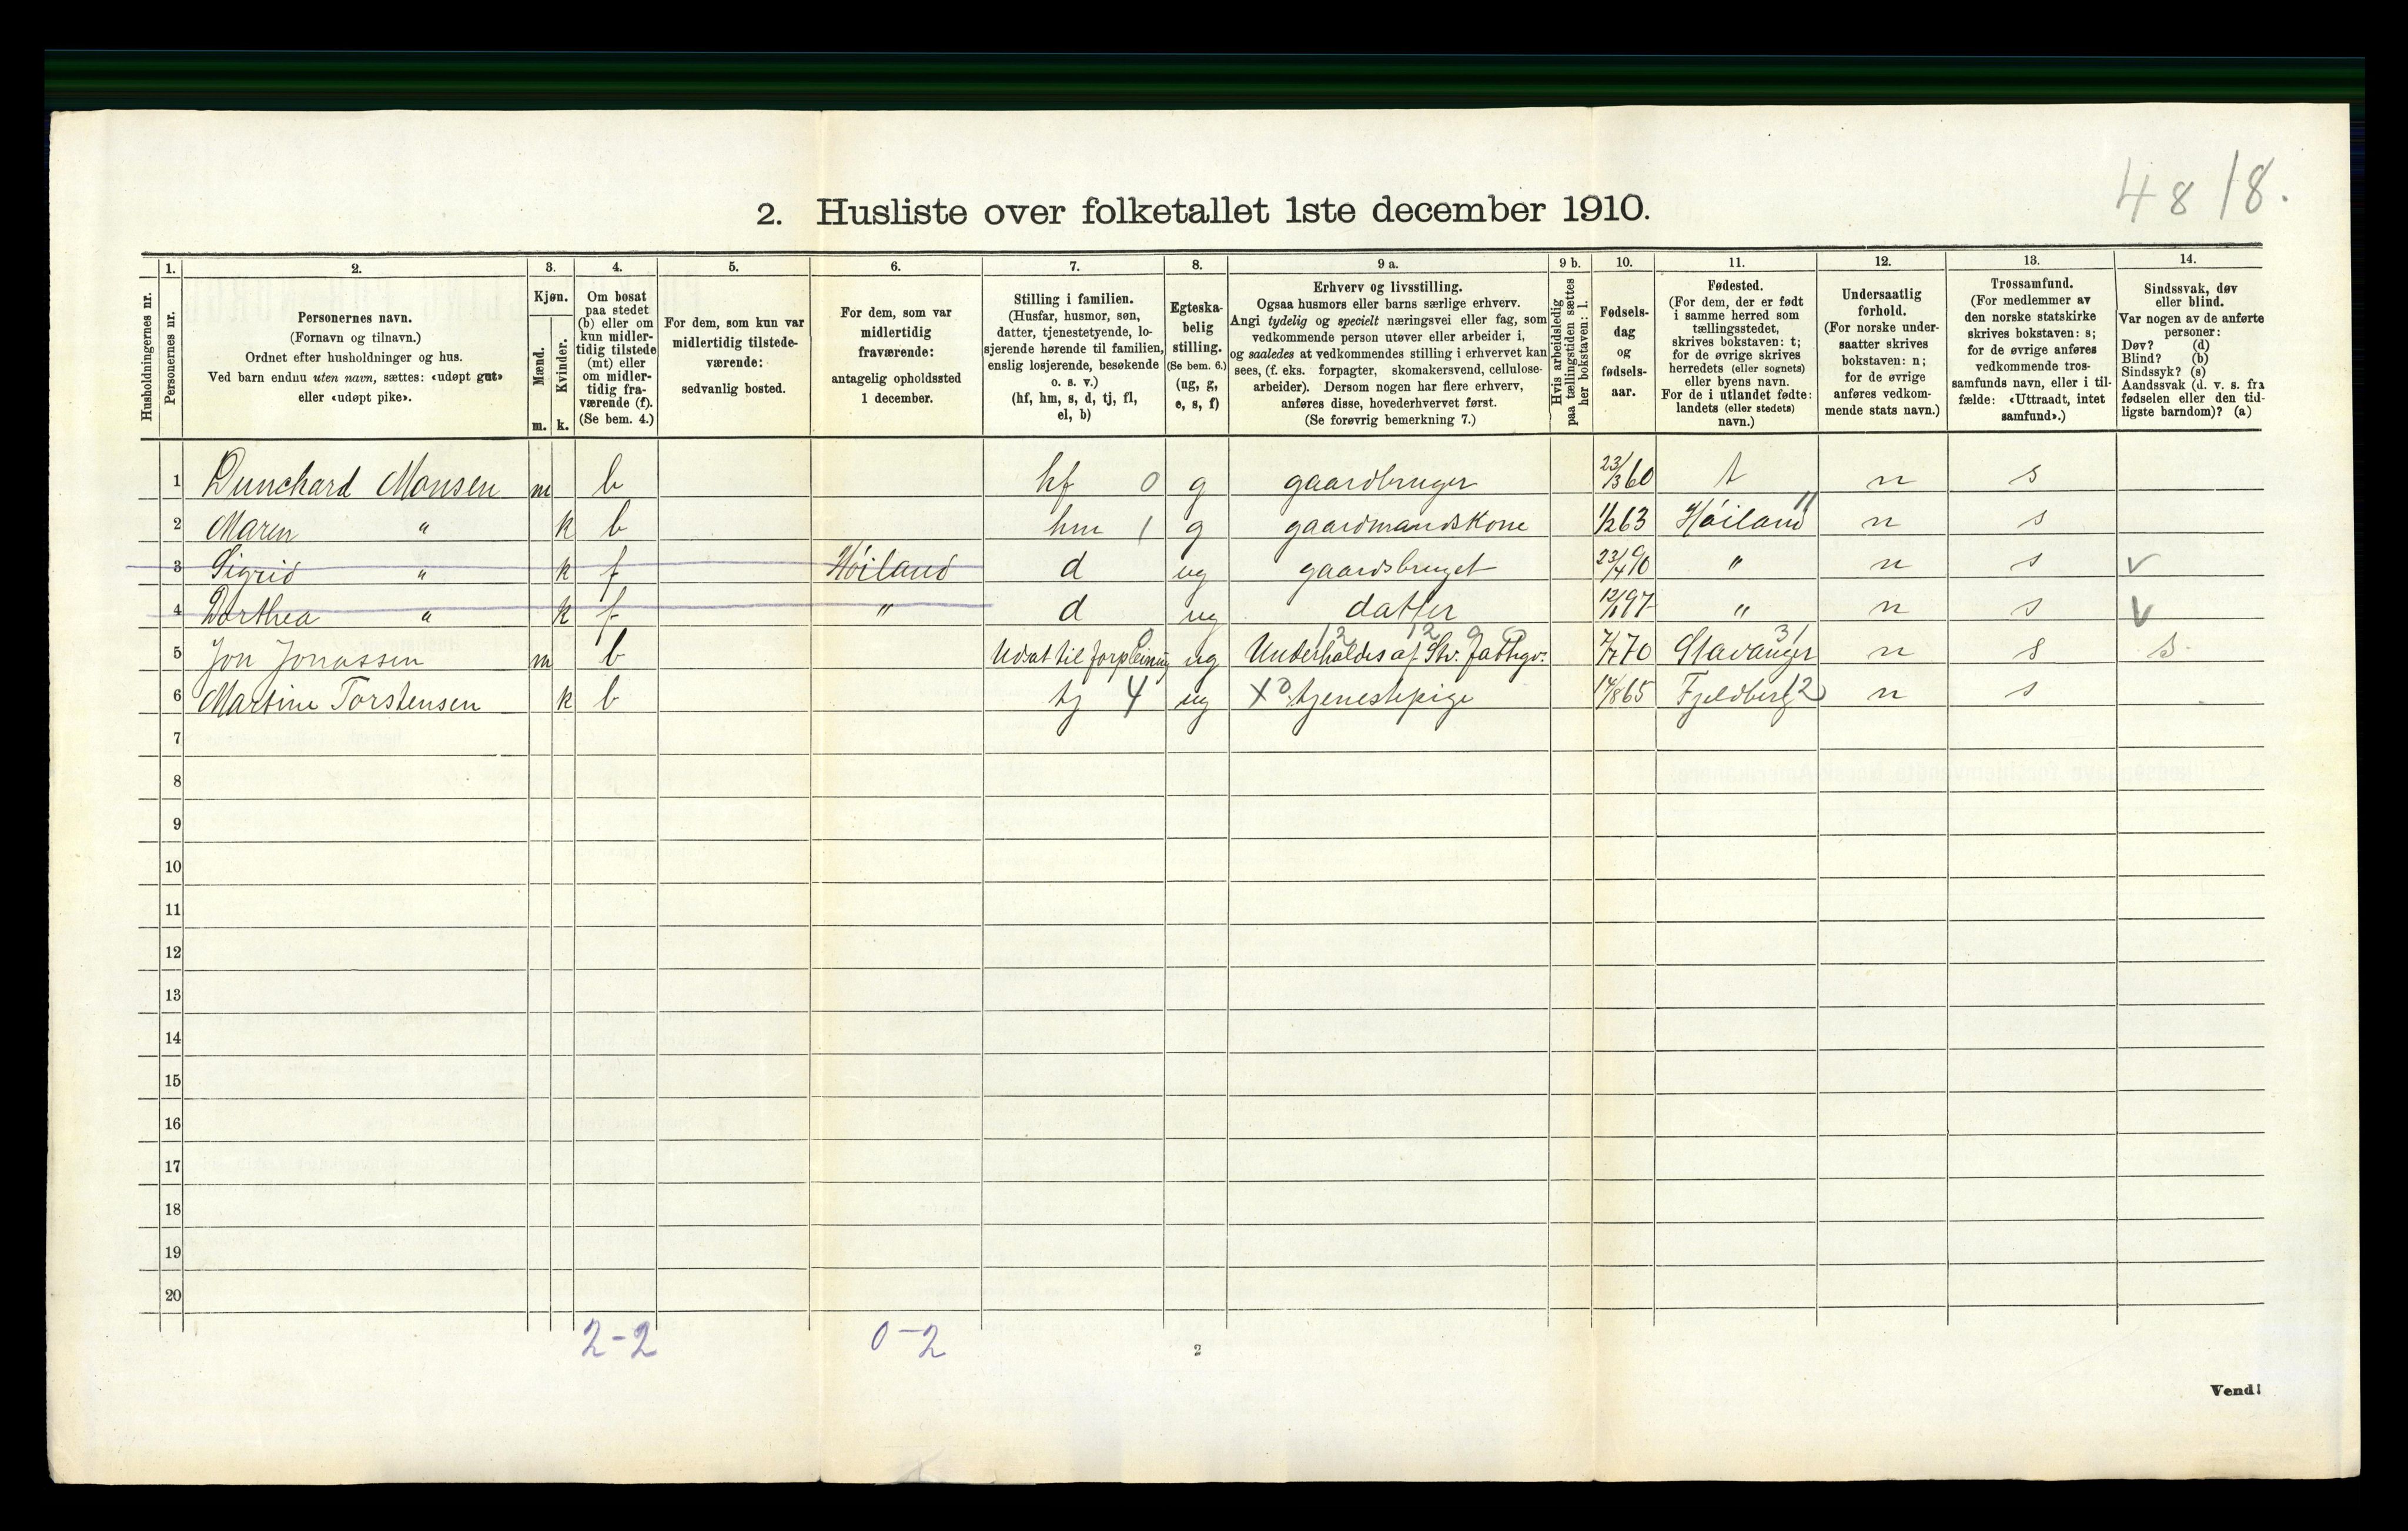 48 18.
2. Husliste over folketallet 1ste december 1910.
Husholdningernes nr.
1.
Personernes nr.
2.
Personernes navn.
(Fornavn og tilnavn.)
Ordnet efter husholdninger og hus.
Ved barn endnu uten navn, sættes: «udøpt gut»
eller «udøpt pike».
3.
Kjøn.
Mænd.
Kvinder.
m. k.
4.
Om bosat
paa stedet
(b) eller om
kun midler-
tidig tilstede
(mt) eller
om midler-
tidig fra-
værende (f).
(Se bem. 4.)
5.
For dem, som kun var
midlertidig tilstede-
værende:
sedvanlig bosted.
6.
For dem, som var
midlertidig
fraværende:
antagelig opholdssted
1 december.
7.
Stilling i familien.
(Husfar, husmor, søn,
datter, tjenestetyende, lo-
sjerende hørende til familien,
enslig losjerende, besøkende
o. s. v.)
(hf, hm, s, d, tj, fl,
el, b)
8.
Egteska-
belig
stilling.
(Se bem. 6.)
(ug, g,
e, s, f)
9 a.
Erhverv og livsstilling.
Ogsaa husmors eller barns særlige erhverv.
Angi tydelig og specielt næringsvei eller fag, som
vedkommende person utøver eller arbeider i,
og saaledes at vedkommendes stilling i erhvervet kan
sees, (f. eks. forpagter, skomakersvend, cellulose-
arbeider). Dersom nogen har flere erhverv,
anføres disse, hovederhvervet først.
(Se forøvrig bemerkning 7.)
9 b.
Hvis arbeidsledig
paa tællingstiden sættes
her bokstaven: l.
10.
Fødsels-
dag
og
fødsels-
aar.
11.
Fødested.
(For dem, der er født
i samme herred som
tællingsstedet,
skrives bokstaven: t;
for de øvrige skrives
herredets (eller sognets)
eller byens navn.
For de i utlandet fødte:
landets (eller stedets)
navn.)
12.
Undersaatlig
forhold.
(For norske under-
saatter skrives
bokstaven: n;
for de øvrige
anføres vedkom-
mende stats navn.)
13.
Trossamfund.
(For medlemmer av
den norske statskirke
skrives bokstaven: s;
for de øvrige anføres
vedkommende tros-
samfunds navn, eller i til-
fælde: «Uttraadt, intet
samfund».)
14.
Sindssvak, døv
eller blind.
Var nogen av de anførte
personer:
Døv? (d)
Blind? (b)
Sindssyk? (s)
Aandssvak (d. v. s. fra
fødselen eller den tid-
ligste barndom)? (a)
1 Dunchard Monsen m b hf 0 g gaardbruger 23/3 60 t n s
2 Maren " k b hm 1 g gaardmandskone 1/2 63 Høiland 11 n s
3 Sigrid " k f Høiland d ug gaardsbruget 23/4 90 " n s v
4 Dorthea " k f " d ug datter 12/1 97 " n s v
5 Jon Jonassen m b Udsat til forpleining ug Underholdes af Stv. Fattigv. 7/7 70 Stavanger 31 n s s.
6 Martine Torstensen k b tj 4 ug X tjenestepige 17/8 65 Fjeldberg 12 n s
7
8
9
10
11
12
13
14
15
16
17
18
19
20
2-2 0-2
2
Vend!